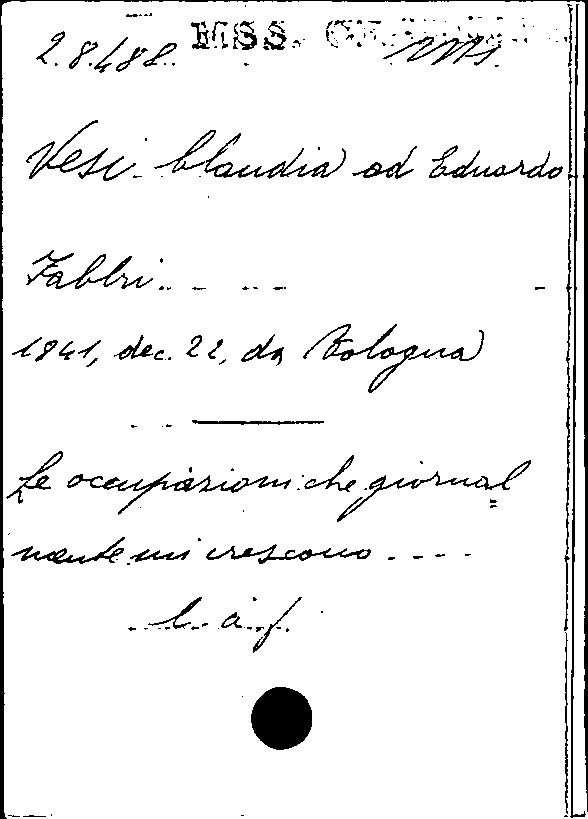 MSS.
2.8.488. Ms.
Vesi Claudia ad Eduardo
Fabbri
1841, dec. 22, da Bologna
Le occupazioni che giornal
mente mi crescono ....
l. a. f.